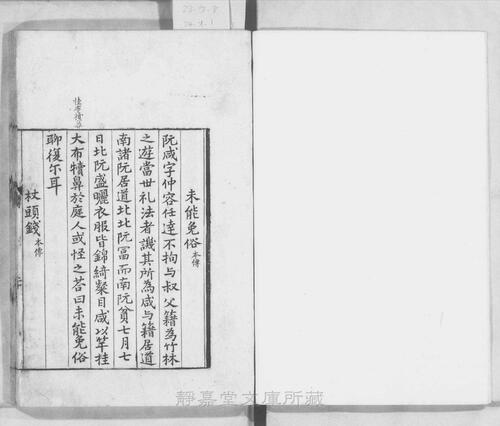 未能免俗本傳
阮咸字仲容任達不拘与叔父籍為竹林
之遊當世礼法者譏其所為咸与籍居道
南諸阮居道北北阮冨而南阮貧七月七
日北阮盛曬衣服皆錦綺粲目咸以竿挂
大布犢鼻於庭人或怪之荅曰未能免俗
聊復尓耳
杖頭錢本傳
靜嘉堂文庫所藏